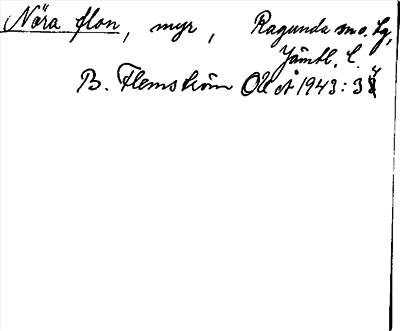 Nåra flon, myr, Ragunda sn o. tg,
Jämtl. l.
B. Flemström OUÅ 1943: 34